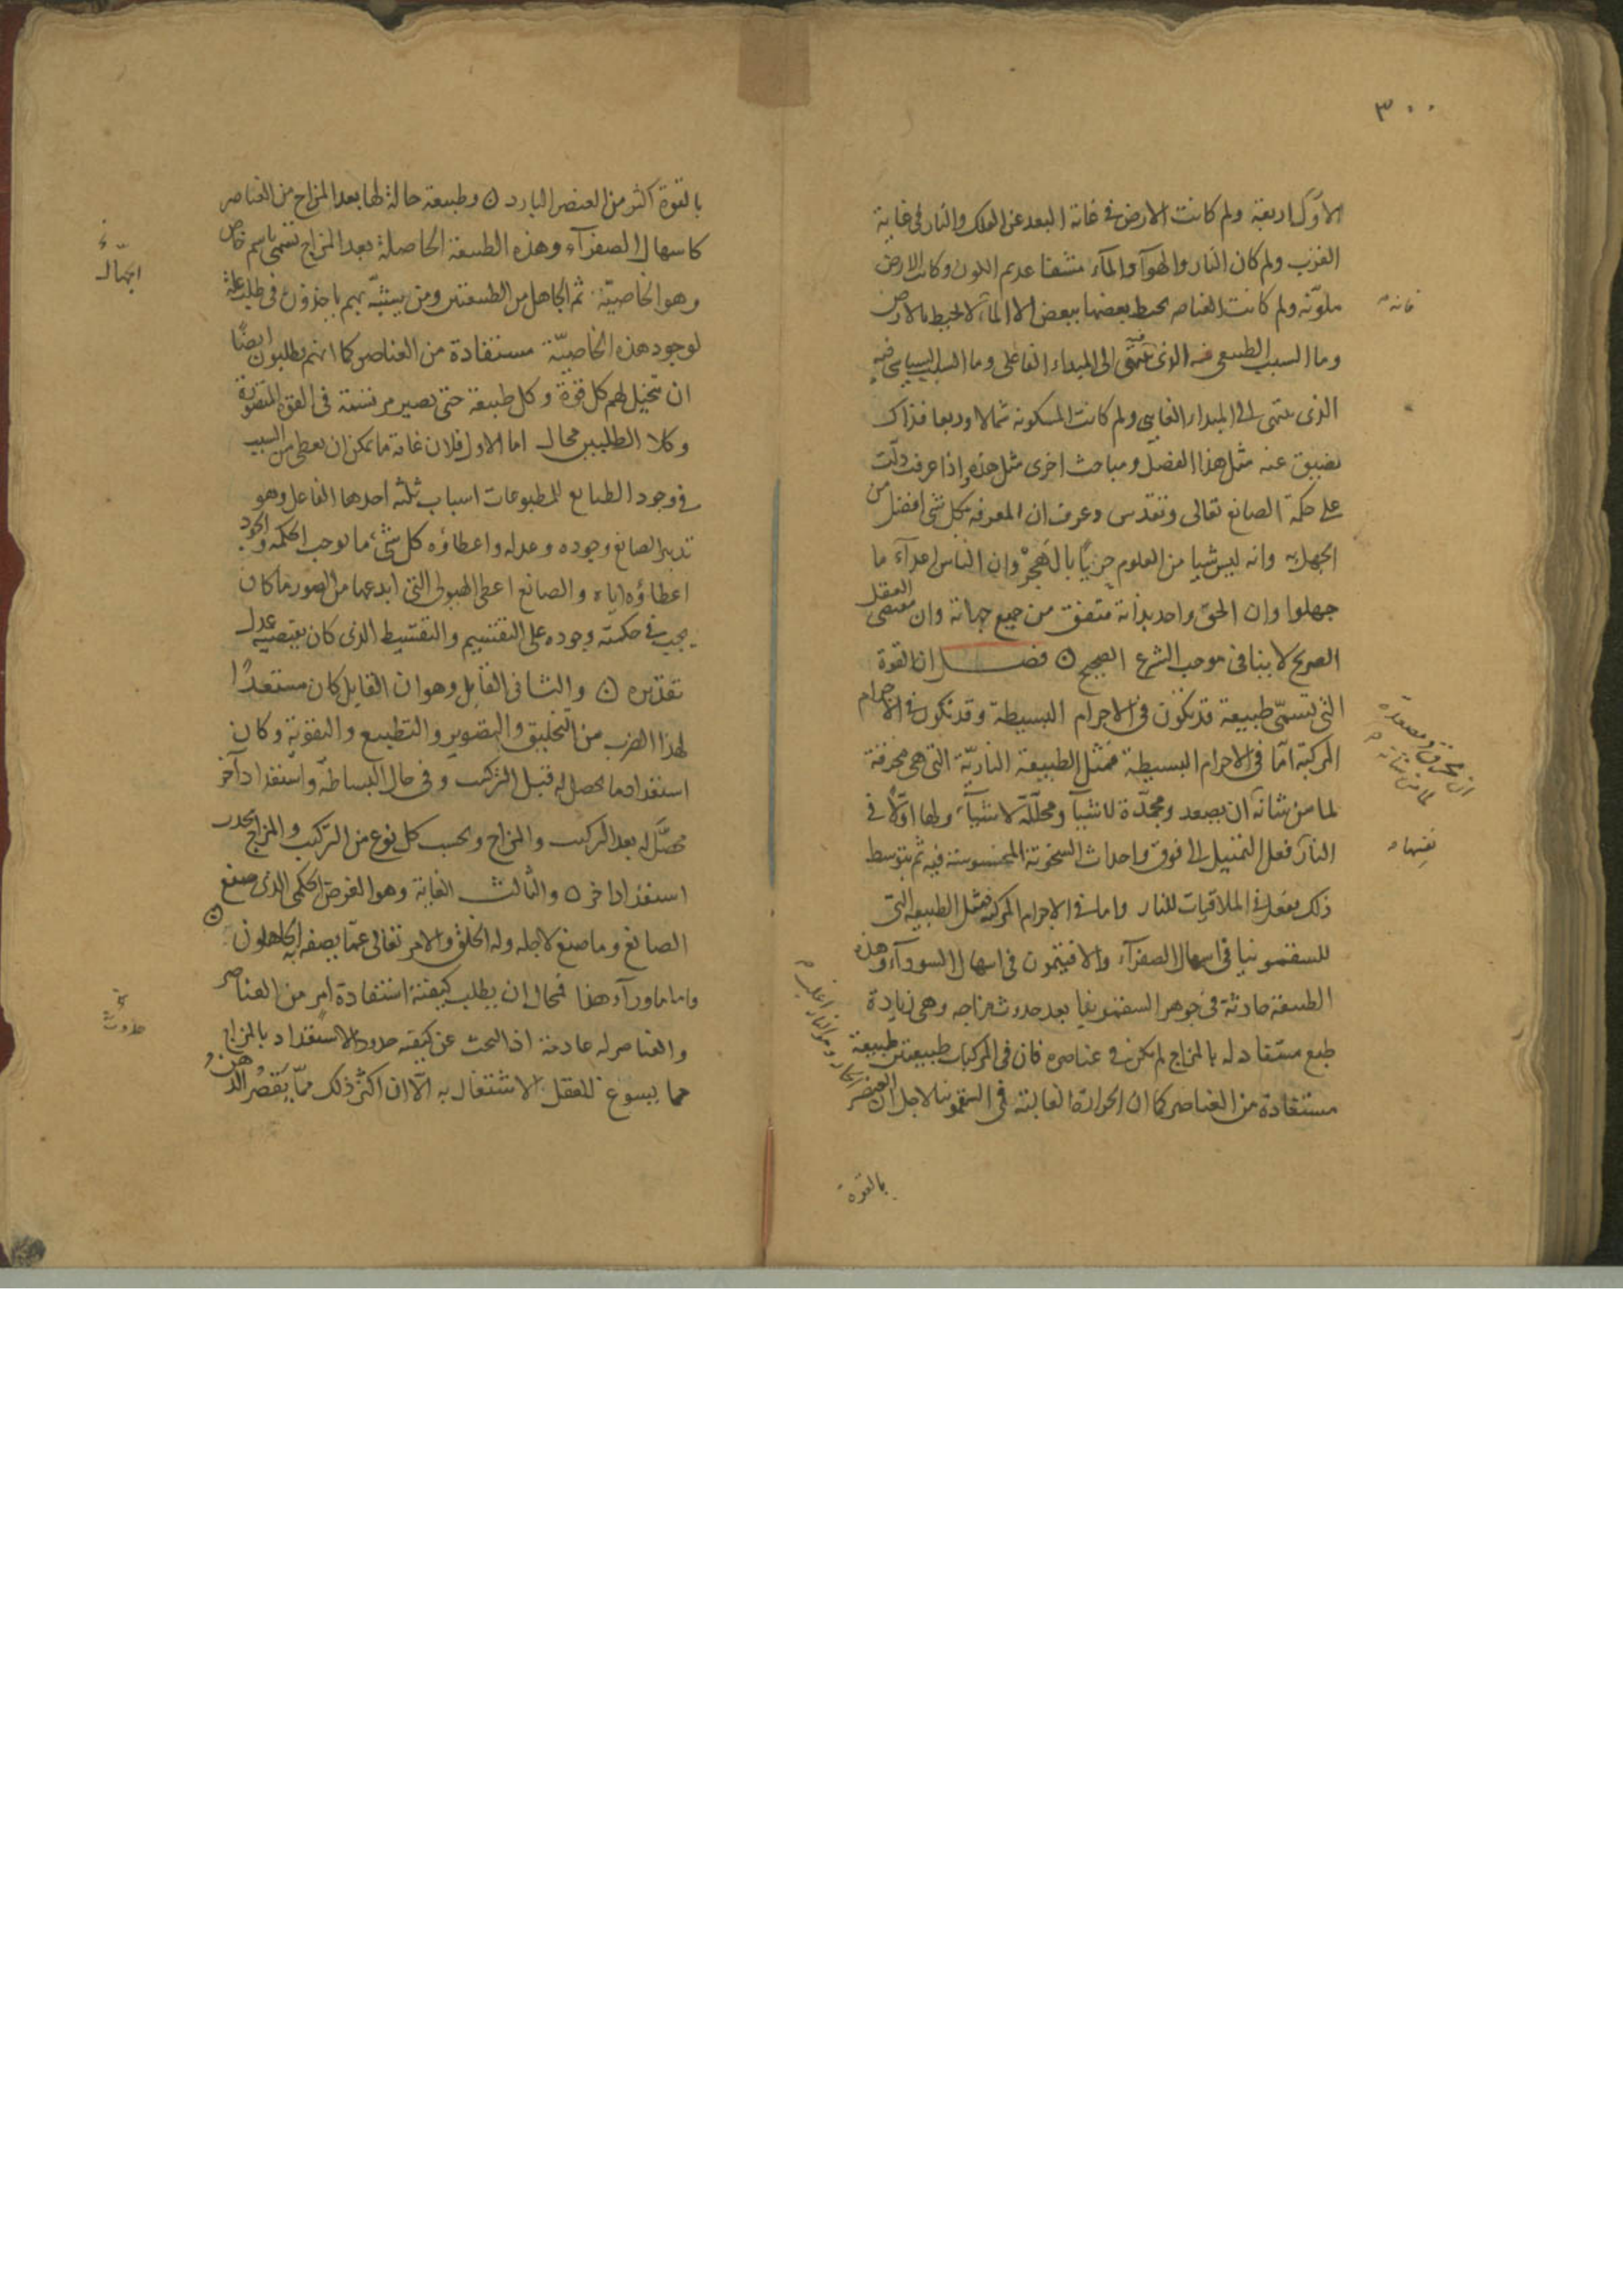 ٣٠٠
الاول اربعة ولم كانت الارض فى غاية البعد عن الفلك والنار فى غاية
القرب ولم كان النار والهوآ والمآء مشفا عديم اللون وكانت الارض
ملونة ولم كانت العناصر يحيط بعضها ببعض الا المآء لا يحيط بالارض
وما السبب الطبيعى فيه الذى ينتهى الى المبداء الفاعلى وما السبب فيه
الذى ينتهى الى المبداء الغايى ولم كانت المسكونة شمالا وربعا فذاك
يضيق عنه مثل هذا الفصل ومباحث اخرى مثل هذه واذا عرفت دلّت
على حكمة الصانع تعالى وتقدس وعرف ان المعرفة بكل شى افضل من
الجهل به وانه ليس شيا من العلوم حريّا بالهجر وان الناس اعدآء ما
جهلوا وان الحق واحد بذاته متفق من جميع جهاته وان مقتضى العقل
الصريح لا ينافى موجب الشرع الصحيح ں فصل ان القوة
التى تسمّى طبيعة قد تكون فى الاجرام البسيطة وقد تكون فى الاجرام
المركبة امّا فى الاجرام البسيطة فمثل الطبيعة الناريّة التى هى محرقة
لما من شانه ان يصعد ومجمّدة لاشيآ ومحلّلة لاشيآء ولها اوّلا فى
النار فعل التمييل الى فوق واحداث السخونة المحسوسة فيه ثم بتوسط
ذلك يفعل فى الملاقيات للنار واما فى الاجرام المركبة فمثل الطبيعة التى
للسقمونيا فى اسهال الصفرآء والافتيمون فى اسهال السودآء وهذه
الطبيعة حادثة فى جوهر السقمونيا بعد حدوث مزاجه وهى زيادة
طبع مستفاد له بالمزاج لم يكن فى عناصره فان فى المركبات طبيعتين طبيعة
مستفادة من العناصر كما ان الحرارة الغالبة فى السقمونيا لاجل ان العنصر
بالقوة
نفسها
بالقوة اكثر من العنصر البارد ں وطبيعة حالة لها بعد المزاج من العناصر
كاسهال الصفرآء وهذه الطبيعة الحاصلة بعد المزاج تسمى باسم خاص
وهو الخاصيّة ثم الجاهل من الطبيعتين ومن يشبّه بهم ياخذون فى طلب علة
لوجود هذه الخاصيّة مستفادة من العناصر كما انهم يطلبون ايضًا
ان تتخيل لهم كل قوة وكل طبيعة حتى تصير مرتسمة فى القوة المتصورة
وكلا الطلبين محال اما الاول فلان غاية ما يمكن ان يعطى من السبب
فى وجود الطبايع للمطبوعات اسباب ثلثه احدها الفاعل وهو
تدبير الصانع وجوده وعدله واعطاؤه كل شىء ما يوجب الحكمة والجود
اعطاؤه اياه والصانع اعطى الهيولى التى ابدعها من الصور ما كان
يجب فى حكمته وجوده على التقسيم والتقسيط الذى كان يقتضيه عدل
تقديره ں والثانى القابل وهو ان القابل كان مستعدًا
لهذا الضرب من التخليق والتصوير والتطبيع والتقوية وكان
استعداد ما يحصل له قبل التركيب وفى حال البساطة واستعداد آخر
محصّل له بعد التركيب والمزاج وبحسب كل نوع من التركيب والمزاج يحدث
استعداد اخر ں والثالث الغاية وهو الغرض الحكمى الذى صنع
الصانع وما صنع لاجله وله الخلق والامر تعالى عمّا يصفه به الجاهلون ں
واما ما ورآء هذا فمحال ان يطلب كيفية استفادة امر من العناصر
والعناصر له عادمة اذ البحث عن كيفية حدود الاستعداد بالمزاج
مما يسوغ للعقل الاشتغال به الّا ان اكثر ذلك ممّا يَقصُر الذهن
الجهّال
حدوث